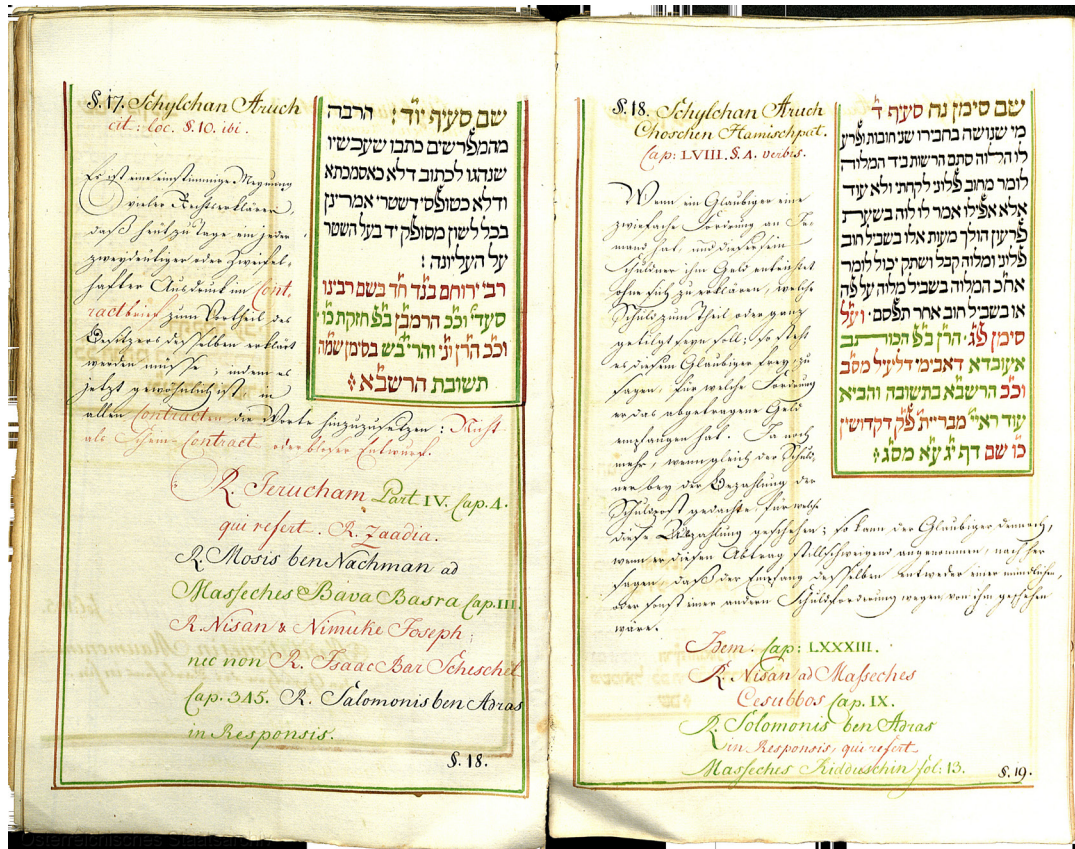 §. 17. Schylchan Aruch
cit: loc. §. 10. ibi.
שם סעף יו״ד : הרבה
מהמפרשים כתבו שעכשיו
שנהגו לכתוב דלא כאסמכתא
ודלא כטופסי דשטרי אמרינן
בכל לשון מסופק יד בעל השטר
על העליונה :
רבי ירוחם בנ״ד ח״ד בשם רבינו
סעדי׳ וכ״כ הרמב״ן בפ׳ חזקת
וכ״כ הר״ן ונ״י והרי״בש בסימן שמ״ה
תשובת הרשב״א
Es ist eine einstimmige Meynung
vieler Rechtserklärer,
daß heut zu Tage ein jeder
zweydeutiger oder zweifel-
hafter Ausdruck im Cont-
ractbrief zum Vortheil des
Besitzers desselben erklärt
werden müsse; indem es
jetzt gewöhnlich ist in
allen Contracten die Worte hinzuzusetzen: Nicht
als Schein-Contract oder bloßer Entwurf.
R. Jerucham Part IV. Cap. 4.
qui refert. R. Zaadia.
R. Mosis ben Nachman ad
Masseches Bava Basra Cap. III.
R. Nisan & Nimuke Joseph;
nec non R. Isaac Bar Scheschet
Cap. 345. R. Salomonis ben Adras
in Responsis.
§. 18.
§. 18. Schylchan Aruch
Choschen Hamischpat.
Cap: LVIII. §. 4. verbis.
שם סימן נח סעף ד׳
מי שנושה בחבירו שני חובות ופרע
לו הלוה סתם הרשות ביד המלוה
לומר מחוב פלוני לקחתי ולא עוד
אלא אפילו אמר לו לוה בשעת
פרעון הולך מעות אלו בשביל חוב
פלוני ומלוה קבל ושתק יכול לומר
אח״כ המלוה בשביל מלוה על פה
או בשביל חוב אחר תפסם ׃ ועל
סימן פ״ג ׃ הר״ן בפ׳ הכותב
אעובדא דאבימי דלעיל מס״ב
וכ״כ הרשב״א בתשובה והביא
עוד ראיי׳ מברייתא פ״ק דקדושין
שם דף י״ג ע״א מס״ג
Wenn ein Gläubiger eine
zwiefache Forderung an Je-
mand hat, und dieser sein
Schuldner ihm Geld entrichtet
ohne sich zu erklären, welche
Schuld zum Theil oder ganz
getilgt seyn soll; so steht
es diesem Gläubiger frey, zu
sagen, für welche Forderung
er das abgetragene Geld
empfangen hat. Ja noch
mehr, wenn gleich der Schuld-
ner bey der Bezahlung der
Schuldpost gedachte, für welche
diese Bezahlung geschehen; so kann der Gläubiger dennoch,
wenn er diesen Abtrag stillschweigend angenommen, nachher
sagen, daß der Empfang desselben entweder einer mündlichen,
oder sonst einer andern Schuldforderung wegen von ihm geschehen
wäre.
Item. Cap: LXXXIII.
R. Nisan ad Masseches
Cesubbos Cap. IX.
R. Solomonis ben Adras
in Responsis, qui refert
Masseches Kidduschin fol: 13.
§. 19.
Österreichisches Staatsarchiv